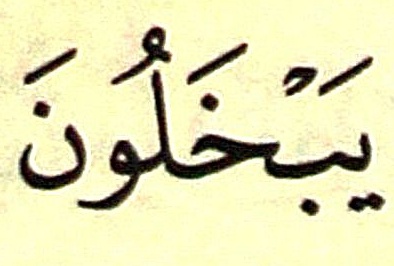 يَبْخَلُونَ